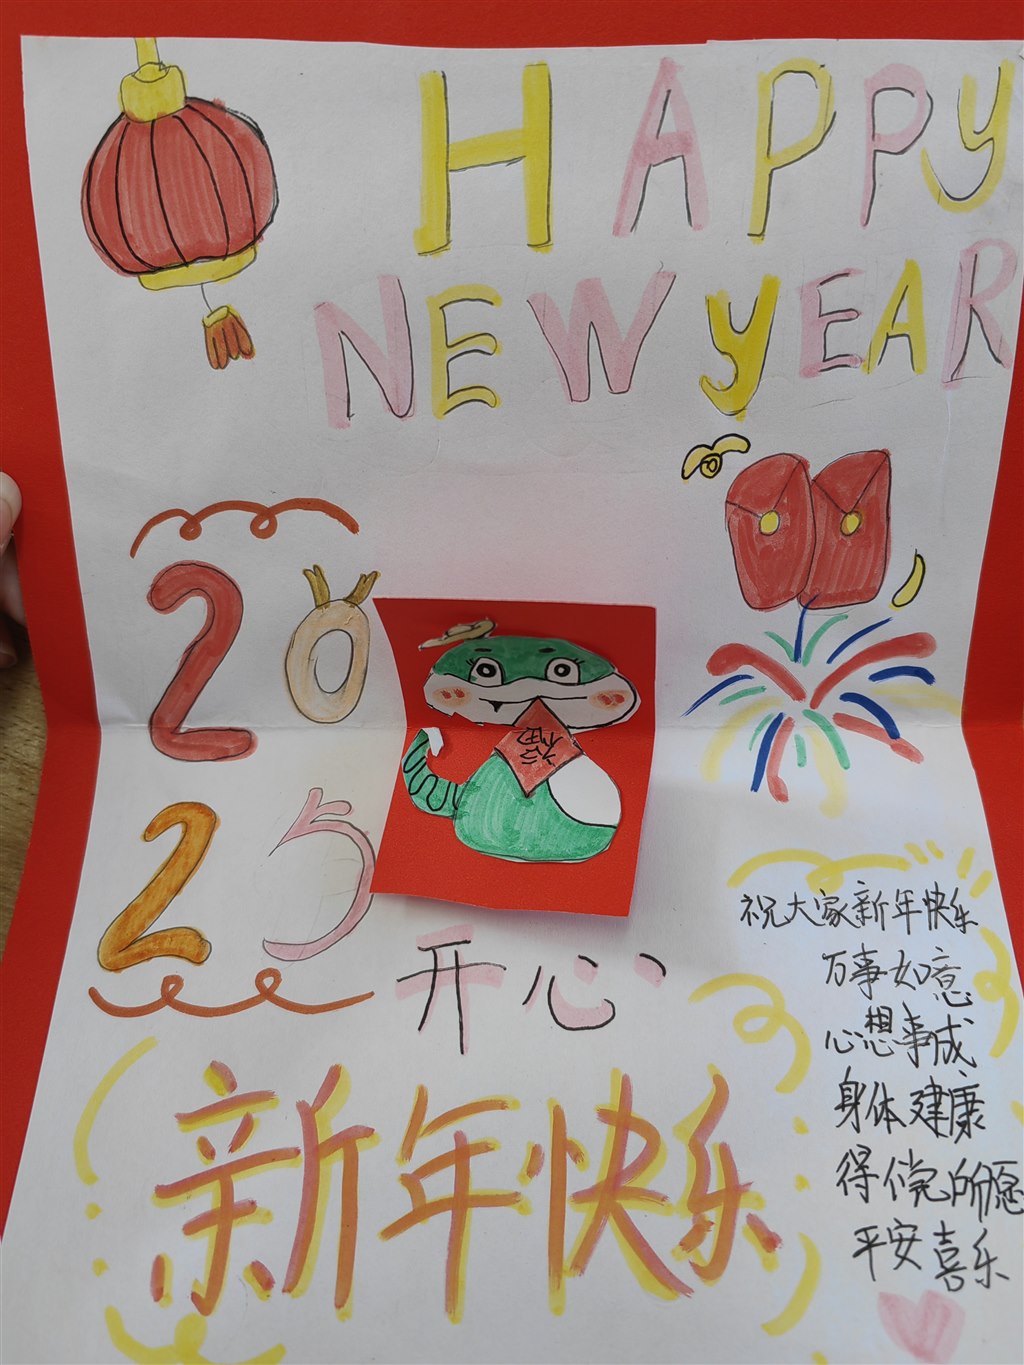 HAPPY
NEW YEAR
20
福
25
开心
新年快乐
祝大家新年快乐
万事如意
心想事成
身体健康
得偿所愿
平安喜乐